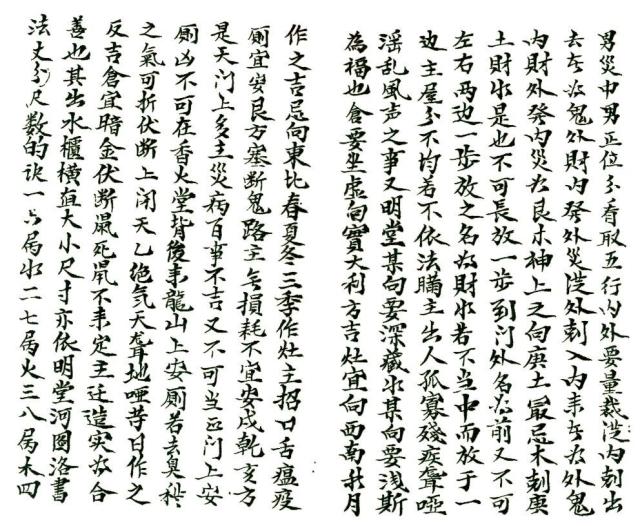 男災中男正位分看取五行内外要量裁従内剋出
去台为鬼外財内發外災従外剋入内来台为外鬼
内財外發内災为艮木神上之向庚土最忌木剋庚
土財水是也不可長放一步到门外名为前又不可
左右两边一步放之名为財水若不当中而放于一
边主屋分不均若不依法瞞主出人孤寡殘疾聾啞
滛乱風声之事又明堂某向要深蔵水某向要浅斯
為福也倉要坐虚向實大利方吉灶宜向西南秋月
作之吉忌向東北春夏冬三季作灶主招口舌瘟疫
厠宜安艮方塞断鬼路主无損耗不宜安戌乾亥方
是天门上多主災病百事不吉又不可当正门上安
厠凶不可在香火堂背後来龍山上安厠若去臭秽
之氣可折伏断上闭天乙绝気天聾地啞昔日作之
反吉倉宜暗金伏断鼠死鼠不来定主迁造实为合
善也其出水櫃横直大小尺寸亦依明堂河图洛書
法丈分尺数的诀一六局水二七局火三八局木四